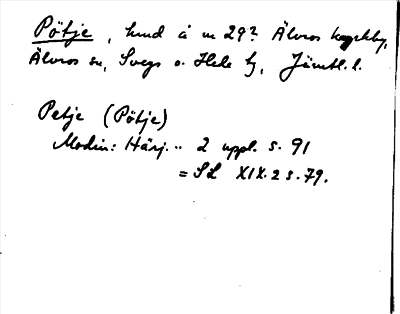 Pötje, lund å n 29? Älvros kyrkby,
Älvros sn, Svegs o. Hede tg, Jämtl. l.
Petje (Pötje)
Modin: Härj. .. 2 uppl. s. 91
= SL XIX.2 s. 79.